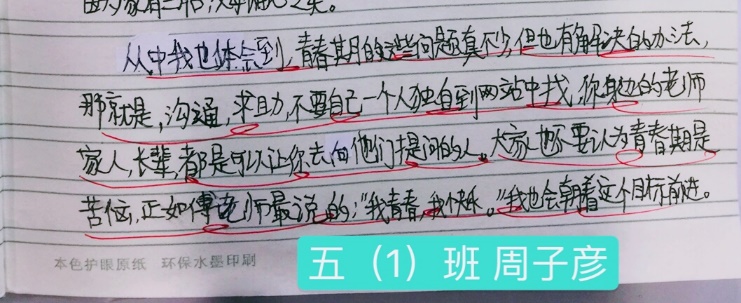 从中我也体会到，青春期的这些问题真不少，但也有解决的办法，
那就是，沟通，求助，不要自己一个人独自到网站中找，你身边的老师
家人，长辈，都是可以让你去向他们提问的人。大家也不要认为青春期是
苦恼，正如傅老师最说的："我青春，我快乐。"我也会朝着这个目标前进。
本色护眼原纸 环保水墨印刷
五（1）班 周子彦